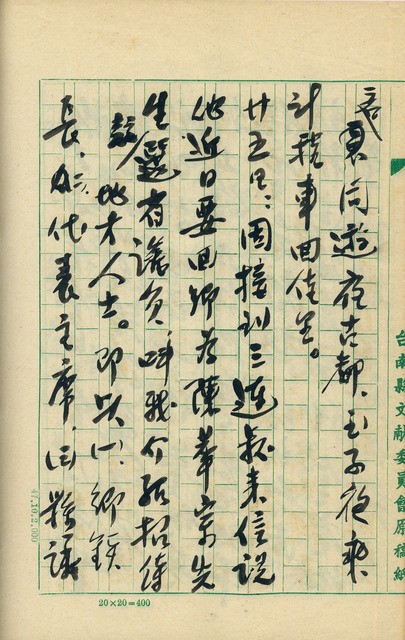 夏同遊夜古都、至子夜乘
計程車回佳里。
廿五日:因接到三連叔來信説
他近日要回鄉為陳華宗先
生選省議員,叫我介紹招待
地方人士。即以鄉鎮
長、代表主席、縣議
台南縣文献委員會原稿紙
47.10.2,000
20×20=400